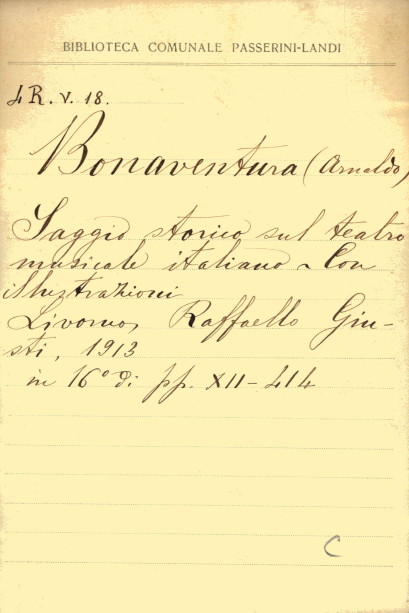 BIBLIOTECA COMUNALE PASSERINI-LANDI
4 R. V. 18.
Bonaventura (Arnaldo)
Saggio storico sul teatro
musicale italiano - Con
illustrazioni
Livorno, Raffaello Giu-
sti, 1913
in 16° di pp. XII-414
C